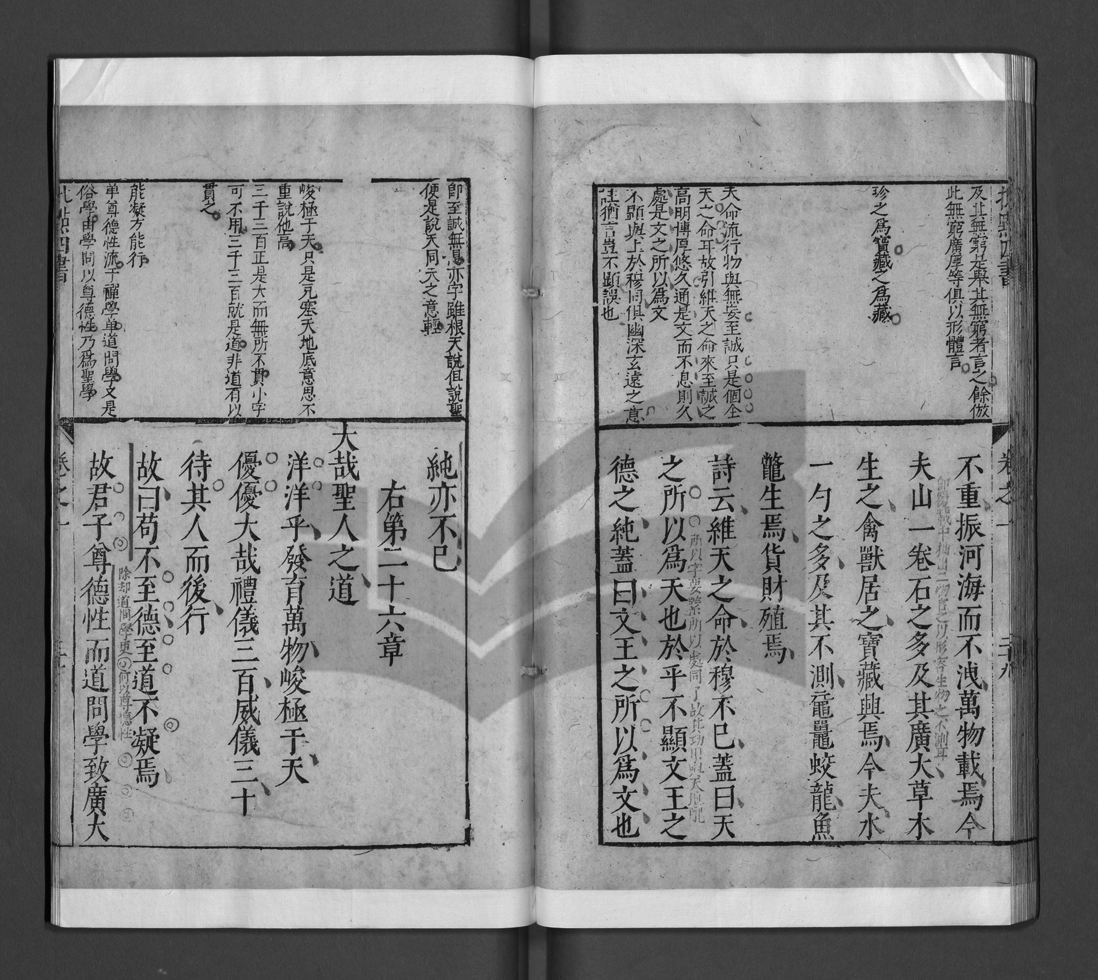 及其無窮是舉其無窮者言之餘倣
此無窮廣厚等俱以形體言
珍之為寶藏之為藏
天命流行物與無妄至誠只是個全
天之命耳故引維天之命來至誠之
高明博厚悠久通是文而不息則久
處是文之所以為文
不顯與上於穆同俱幽深玄遠之意
註猶言豈不顯誤也
不重振河海而不洩萬物載焉今
夫山一卷石之多及其廣大草木
生之禽獸居之寶藏興焉今夫水
一勺之多及其不測黿鼉蛟龍魚
鼈生焉貨財殖焉
詩云維天之命於穆不已蓋曰天
之所以爲天也於乎不顯文王之
德之純蓋曰文王之所以爲文也
卽至誠無息亦字雖根天說但說聖
便是說天同天之意輕
峻極于天只是充塞天地底意思不
重說他高
三千三百正是大而無所不貫小字
可不用三千三百就是道非道有以
貫之
能凝方能行
单尊德性流于禪學单道問學又是
俗學由學問以尊德性乃爲聖學
純亦不已
右第二十六章
大哉聖人之道
洋洋乎發育萬物峻極于天
優優大哉禮儀三百威儀三千
待其人而後行
故曰苟不至德至道不凝焉
除却道問學更何以尊德性
故君子尊德性而道問學致廣大
卷之一